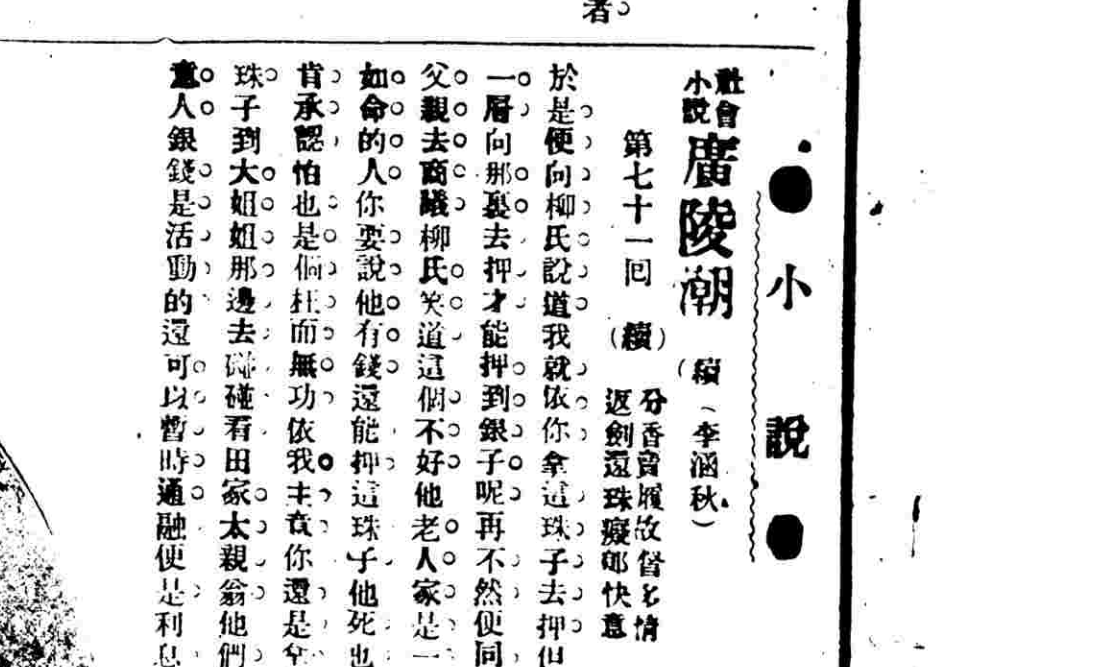 者。
●小說●
社會小說 廣陵潮 (續) (李涵秋)
第七十一回 (續) 分香賣履故督多情 返劍還珠癡郎快意
於是便向柳氏說道我就依你拿這珠子去押但
一層向那裏去押才能押到銀子呢再不然便同
父親去商議柳氏笑道這個不好他老人家是一
如命的人你要說他有錢還能押這珠子他死也
肯承認怕也是個枉而無功依我主意你還是拿
珠子到大姐姐那邊去碰碰看田家太親翁他們
意人銀錢是活動的還可以暫時通融便是利息